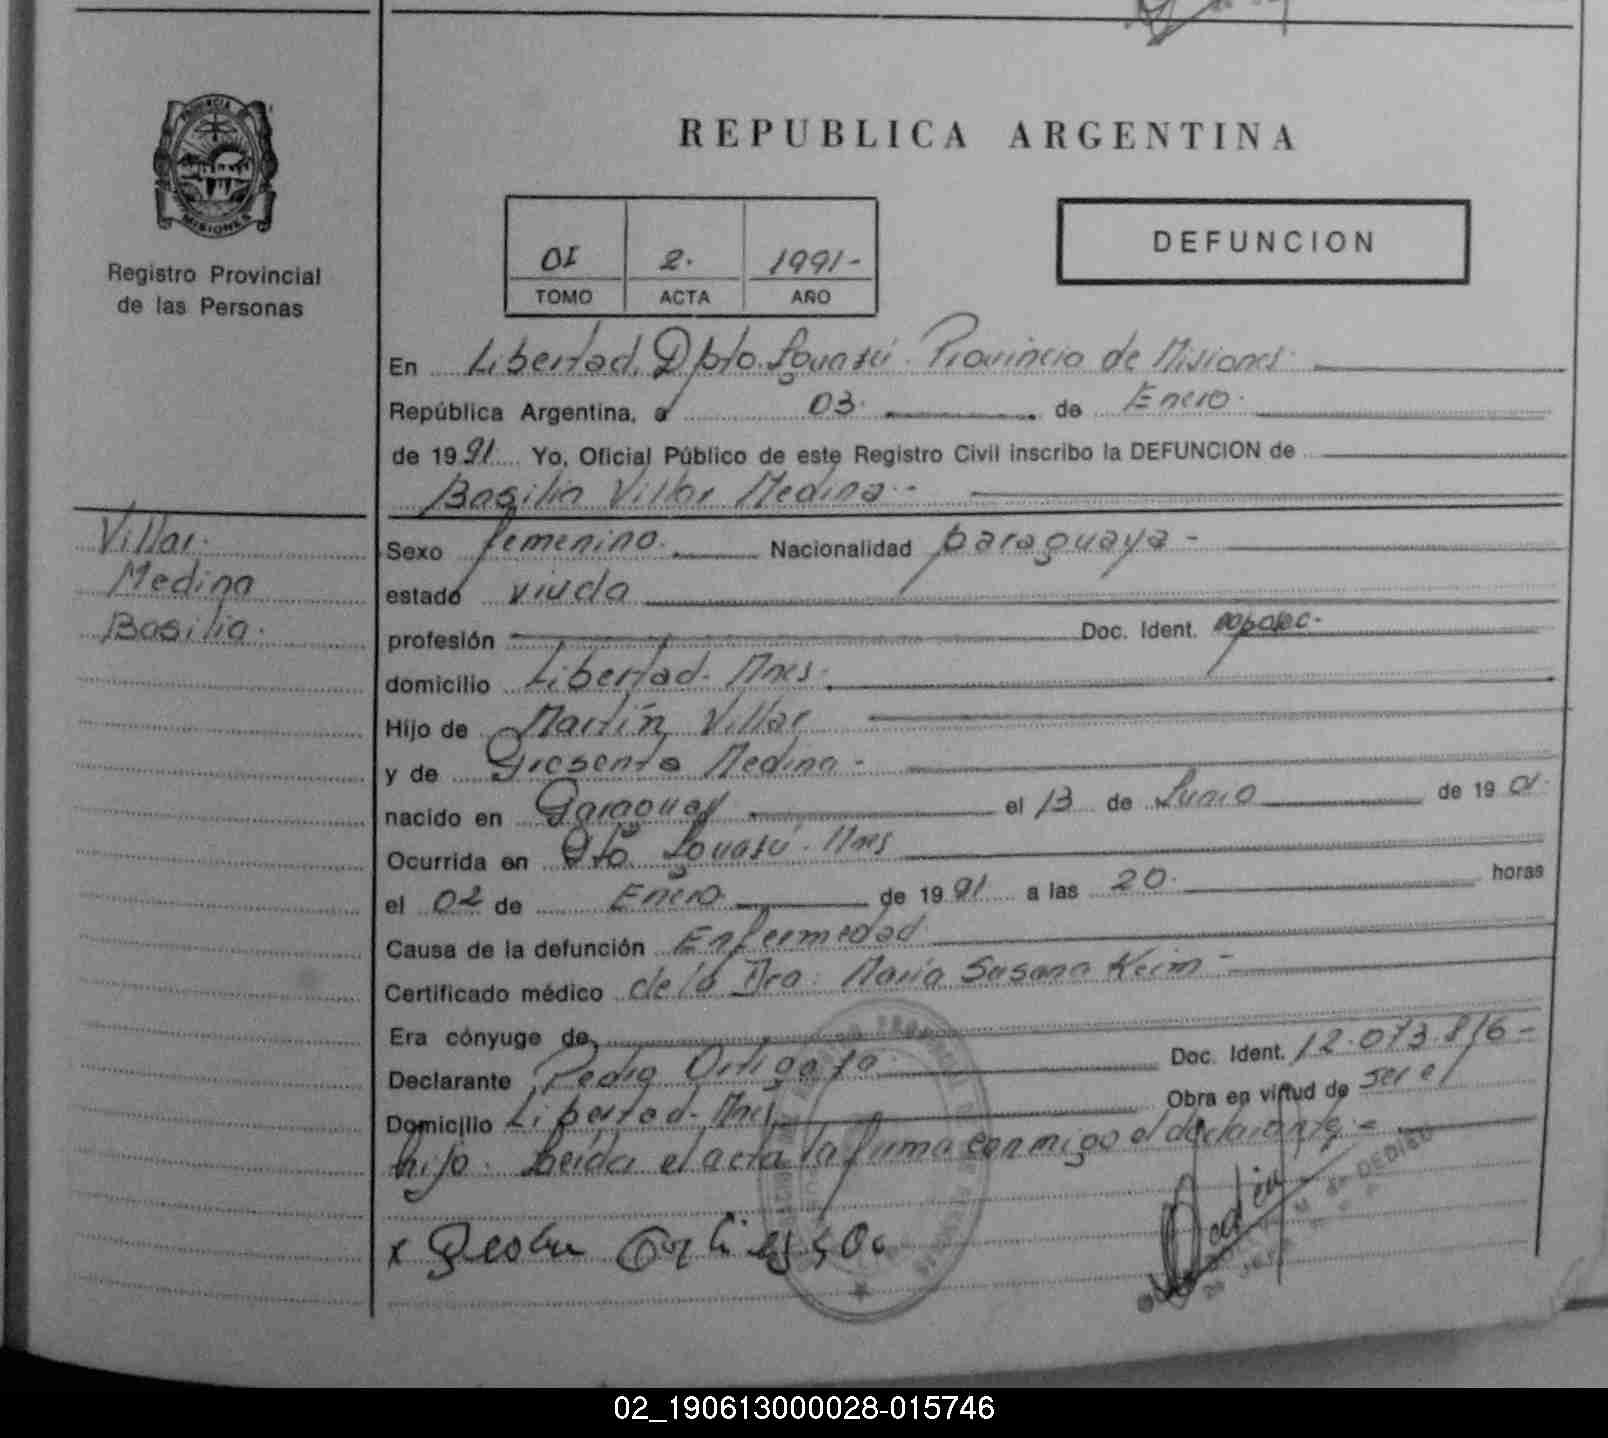 PROVINCIA DE
MISIONES
Registro Provincial
de las Personas
REPUBLICA ARGENTINA
01 2. 1991-
TOMO ACTA AÑO
DEFUNCION
En Libertad, Dpto. Iguazú. Provincia de Misiones.
República Argentina, a 03. de Enero.
de 1991 Yo, Oficial Público de este Registro Civil inscribo la DEFUNCION de
Basilia Villar Medina.-
Villar.
Medina
Basilia.
Sexo femenino. Nacionalidad paraguaya-
estado viuda
profesión Doc. Ident.
domicilio Libertad- Mnes.
Hijo de Martín Villar
y de Medina-
nacido en Paraguay el 13 de Junio de 1901.
Ocurrida en Pto. Iguazú. Mnes
el 02 de Enero de 1991 a las 20. horas
Causa de la defunción Enfermedad
Certificado médico de la Dra. María Susana Keim-
Era cónyuge de
Declarante Pedro Ortigoza Doc. Ident. 12.073.816-
Domicilio Libertad- Mnes Obra en virtud de ser el
hijo. Leída el acta la firma conmigo el declarante.-
x
02_190613000028-015746